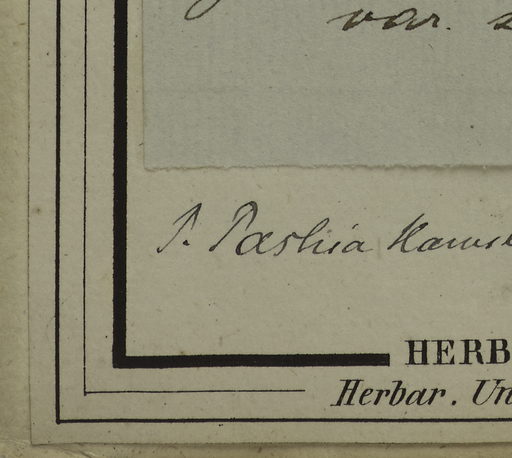 var.
P. Pashia Ham
HERB
Herbar. Un